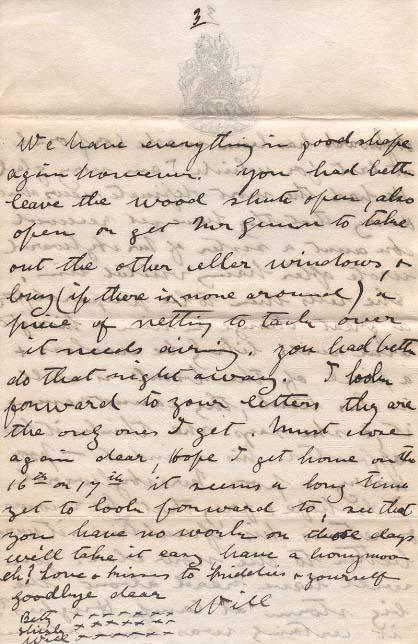 3
We have everything in good shape
again however. You had better
leave the wood shute open, also
open or get Mr Gunn to take
out the other celler windows, &
buy (if there is none around) a
piece of netting to tack over
it needs airing. You had bett
do that right away. I look
forward to your letters they are
the only ones I get. Must close
again dear, hope I get home on the
16th or 17th it seems a long time
yet to look forward to, see that
you have no work on those days
will take it easy have a honymoon
eh? Love & kisses to kiddies & yourself
goodbye dear
Will
Betty x x x x x x x
Shirly x x x x x x x
x x x x x x